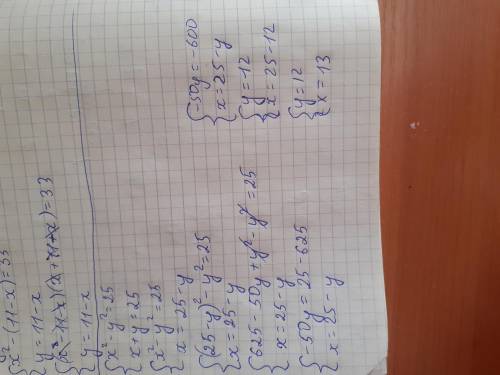 {x² - (11-x)² = 33
{y = 11-x
=33
{y = 11-x
{x² - y² = 25
{x + y = 25
{x² - y² = 25
{x = 25 - y
{(25-y)² - y² = 25
{x = 25 - y
{625 - 50y + y² - y² = 25
{x = 25 - y
{-50y = 25 - 625
{x = 25 - y
{-50y = -600
{x = 25 - y
{y = 12
{x = 25 - 12
{y = 12
{x = 13